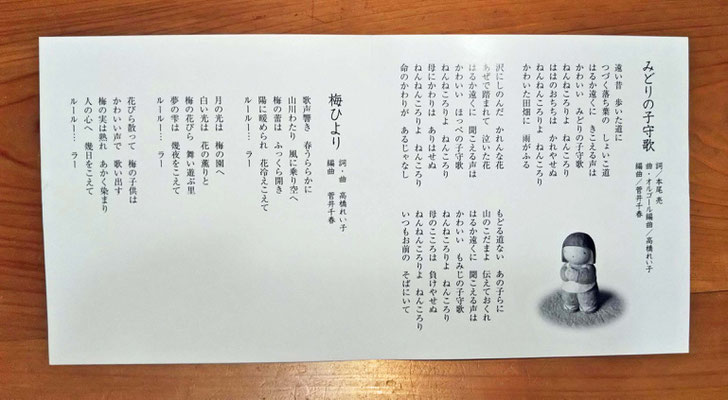 みどりの子守歌
詞／本尾 亮
曲・オルゴール編曲／高橋れい子
編曲／菅井千春
遠い昔 歩いた道に
つづく落ち葉の しょいこ道
はるか遠くに きこえる声は
かわいい みどりの子守歌
ねんねころりよ ねんころり
ははのおちちは かれやせぬ
ねんねんころりよ ねんころり
かわいた田畑に 雨がふる
沢にしのんだ かれんな花
あぜで踏まれて 泣いた花
はるか遠くに 聞こえる声は
かわいい ほっぺの子守歌
ねんねころりよ ねんころり
母にかわりは ありはせぬ
ねんねんころりよ ねんころり
命のかわりが あるじゃなし
もどる道ない あの子らに
山のこだまよ 伝えておくれ
はるか遠くに 聞こえる声は
かわいい もみじの子守歌
ねんねころりよ ねんころり
母のこころは 負けやせぬ
ねんねんころりよ ねんころり
いつもお前の そばにいて
梅ひより
詞・曲 高橋れい子
編曲 菅井千春
歌声響き 春うららかに
山川わたり 風に乗り空へ
梅の蕾は ふっくら開き
陽に暖められ 花冷えこえて
ルールー… ラー
月の光は 梅の園へ
白い光は 花の薫りと
梅の花びら 舞い遊ぶ里
夢の雫は 幾夜をこえて
ルールー… ラー
花びら散って 梅の子供は
かわいい声で 歌い出す
梅の実は熟れ あかく染まり
人の心へ 幾日をこえて
ルールー… ラー